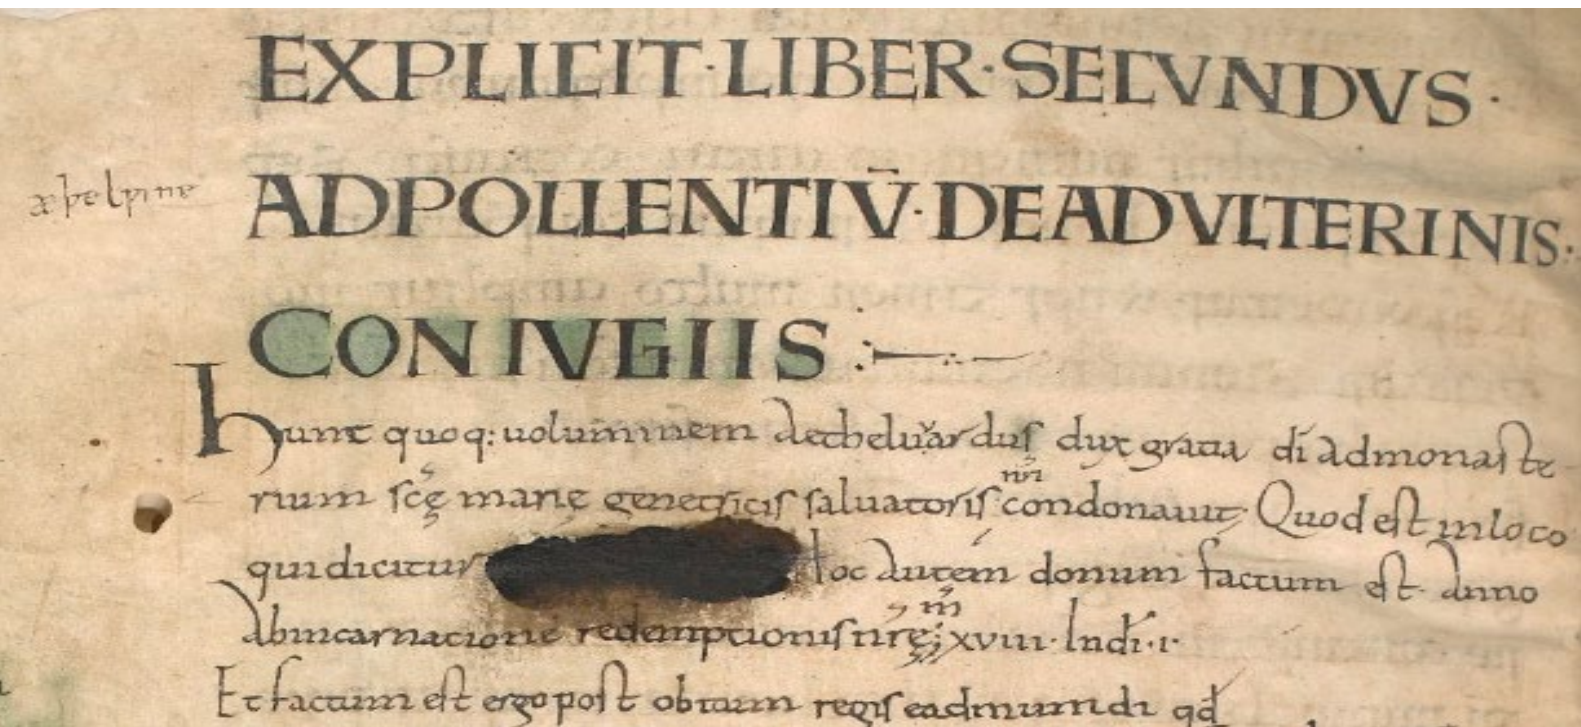 EXPLICIT·LIBER·SECVNDVS·
æþelƿine
ADPOLLENTIV̄·DEADVLTERINIS:
CONIVGIIS
hunc quoq: uolumīnem aethelƿardus dux gratia dī admonaste
rium scę marię genetricis saluatoris condonauit, Quod est inloco
qui dicitur hoc autem donum factum est anno
abincarnacione redemptionis nrę; xviii· Indī·i·
Et factum est ergo post obitum regis eadmundi qđ